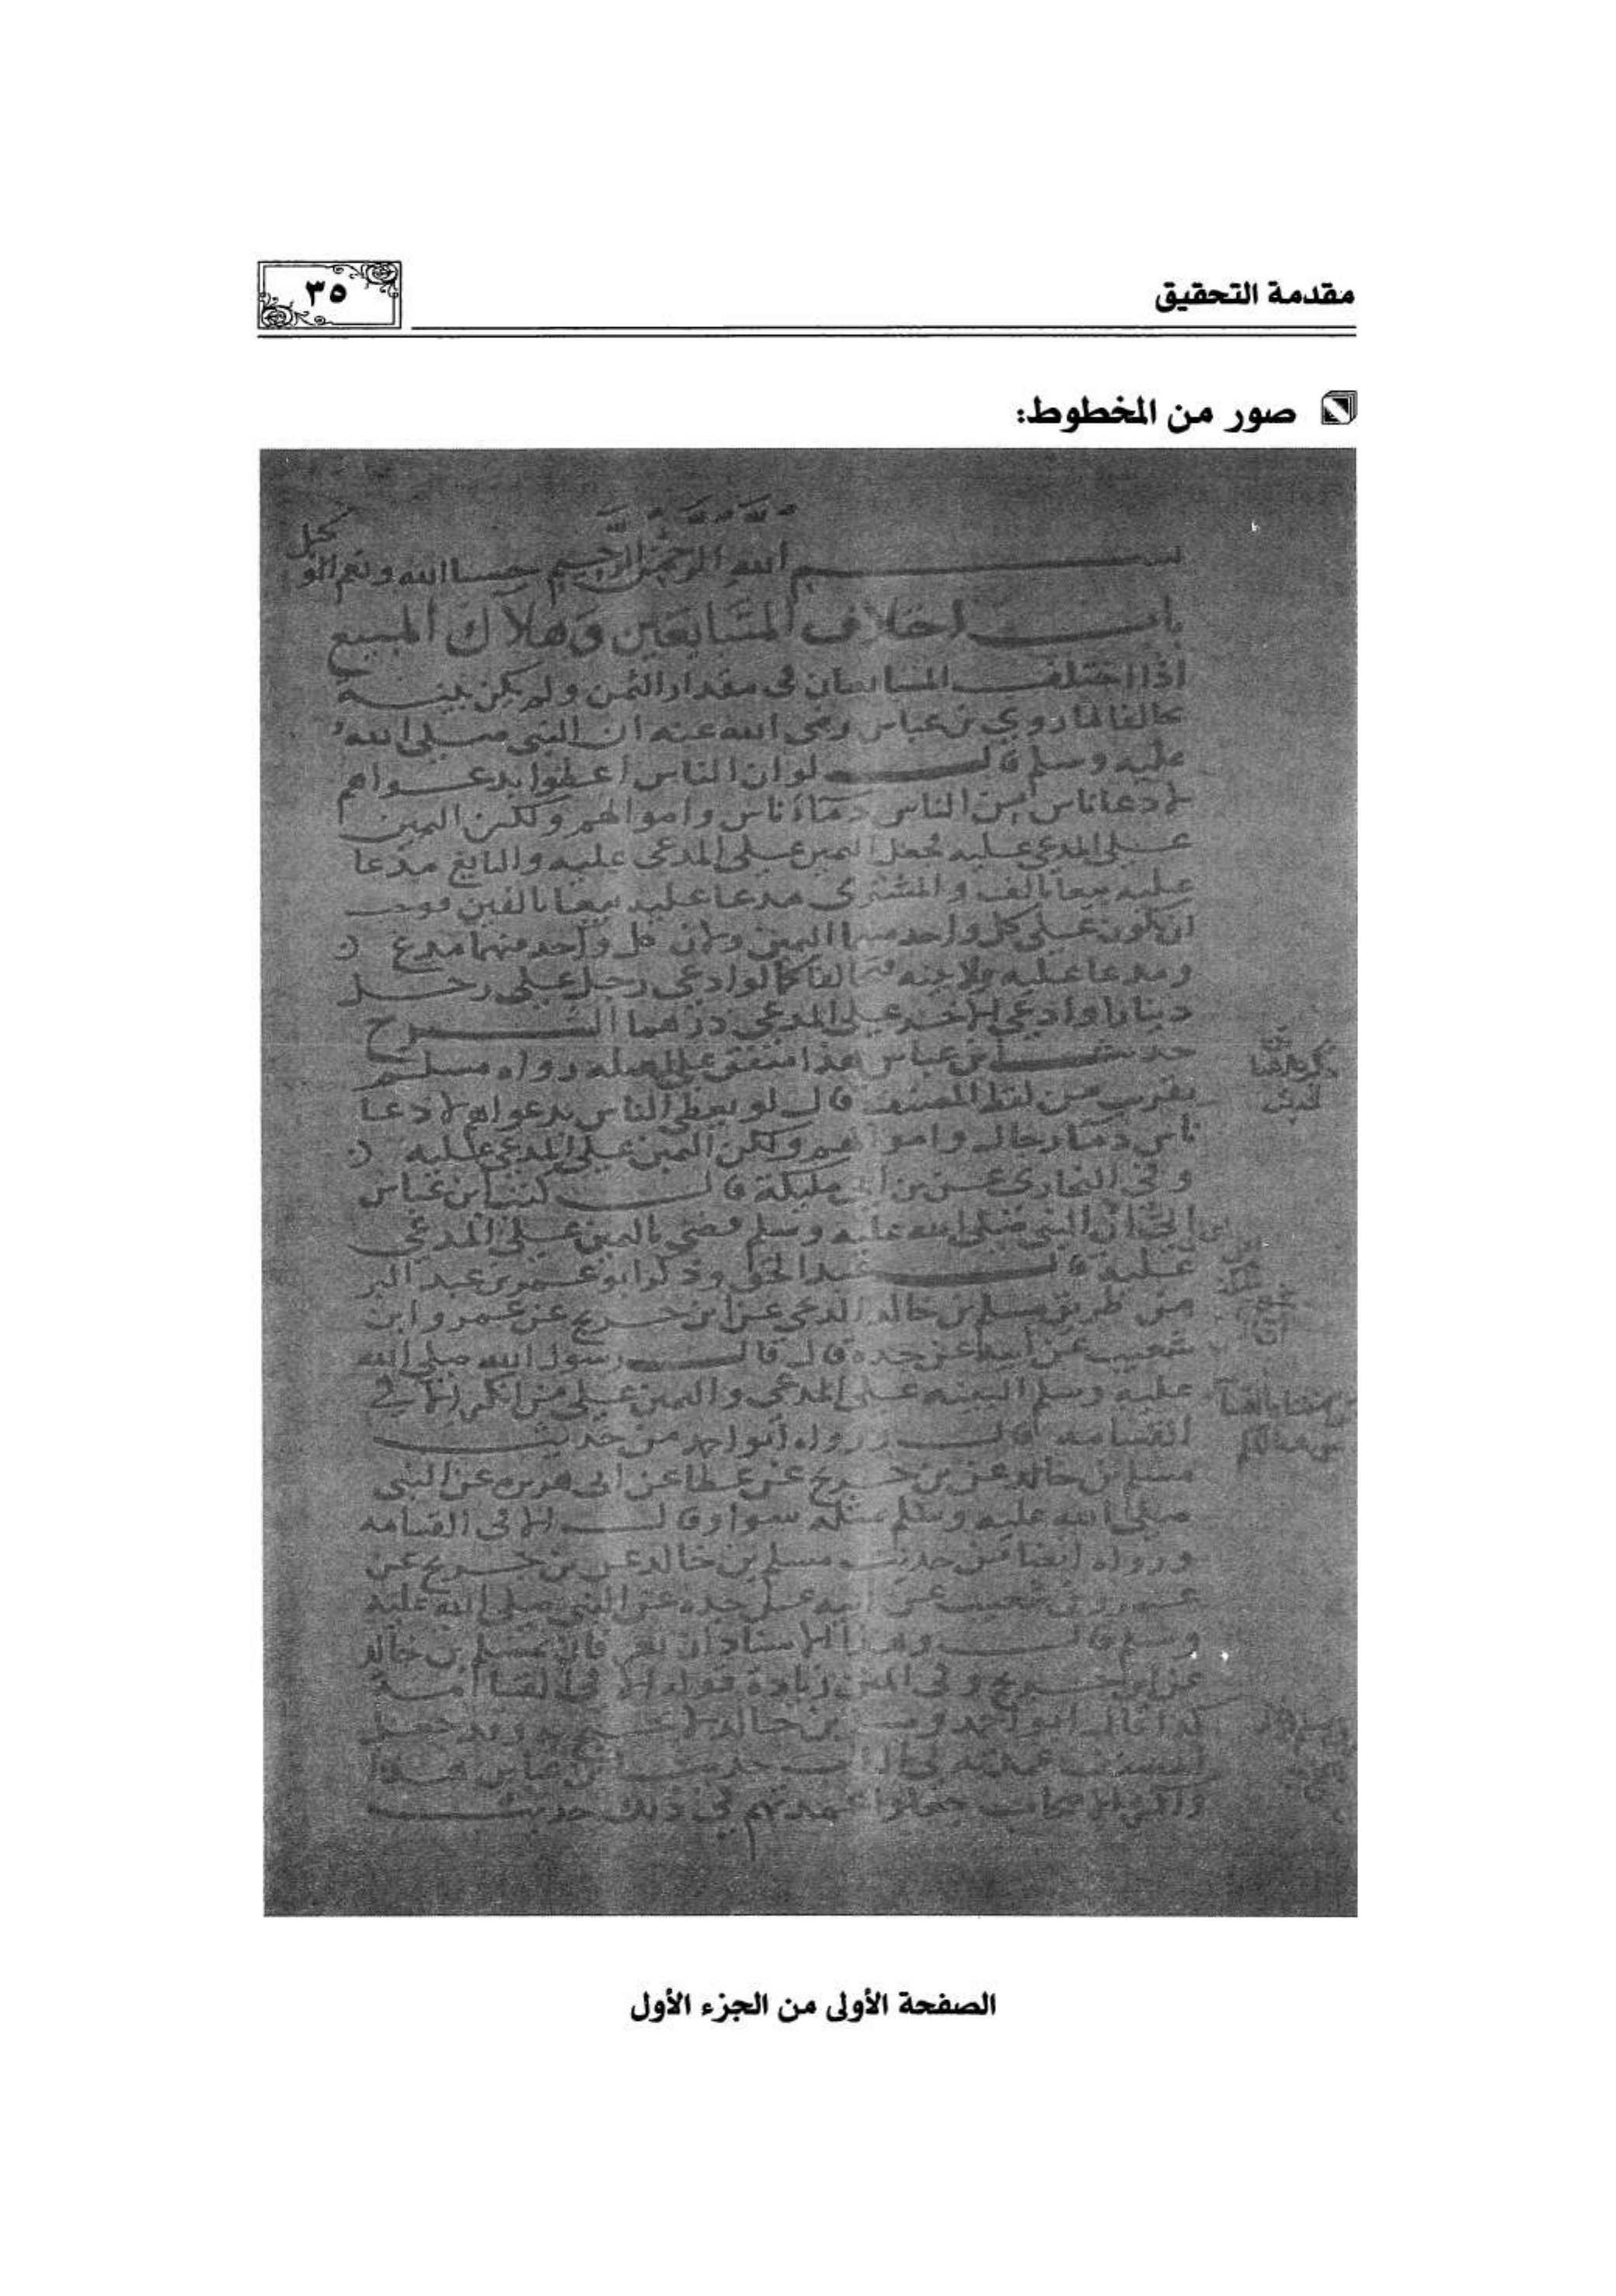 مقدمة التحقيق
٣٥
صور من المخطوط:
بسم الله الرحمن الرحيم حسبنا الله ونعم الوكيل
باب اختلاف المتبايعين وهلاك المبيع
اذا اختلف المتبايعان في مقدار الثمن ولم يكن بينة
تحالفا لما روي بن عباس رضى الله عنه ان النبي صلى الله
عليه وسلم قال لو ان الناس أعطوا بدعواهم
لادعا ناس من الناس دماء ناس واموالهم ولكن اليمين
على المدعى عليه فجعل اليمين على المدعى عليه والبايع مدعا
عليه بيعا بالف والمشترى مدعا عليه بيعا بالفين فوجب
ان يكون على كل واحد منهما اليمين ولان كل واحد منهما مدع
ومدعا عليه ولا بينه فتحالفا كما لو ادعى رجل على رجل
دينارا وادعى الاخر على المدعى درهما الشرح
حديث ابن عباس هذا متفق على اصله رواه مسلم
بقريب من لفظ المصنف قال لو يعطى الناس بدعواهم لادعا
ناس دما رجال واموالهم ولكن اليمين على المدعى عليه
وفى البخاري عن بن أبى مليكة قال كتب ابن عباس
الي ان النبي صلى الله عليه وسلم قضى باليمين على المدعى
عليه قال عبد الحق وذكر ابو عمر بن عبد البر
من طريق مسلم بن خالد الزنجى عن ابن جريج عن عمرو ابن
شعيب عن ابيه عن جده قال قال رسول الله صلى الله
عليه وسلم البينه على المدعى واليمين على من انكر الا في
القسامه قال ورواه أبو احمد من حديث
مسلم بن خالد عن بن جريج عن عطا عن ابى هريره عن النبى
صلى الله عليه وسلم مثله سوا وقال الا فى القسامه
ورواه ايضا من حديث مسلم بن خالد عن بن جريج عن
عمرو بن شعيب عن ابيه عن جده عن النبي صلى الله عليه
وسلم قال وهذا الاسناد ان مسلم بن خالد
عن ابن جريج وفى المتن زيادة قوله الا فى القسامة
كذا قال ابو احمد ومسلم بن خالد لا
حديث ابن عباس هذا
واكثر الاصحاب جعلوا عمدتهم في ذلك حديث
الصفحة الأولى من الجزء الأول